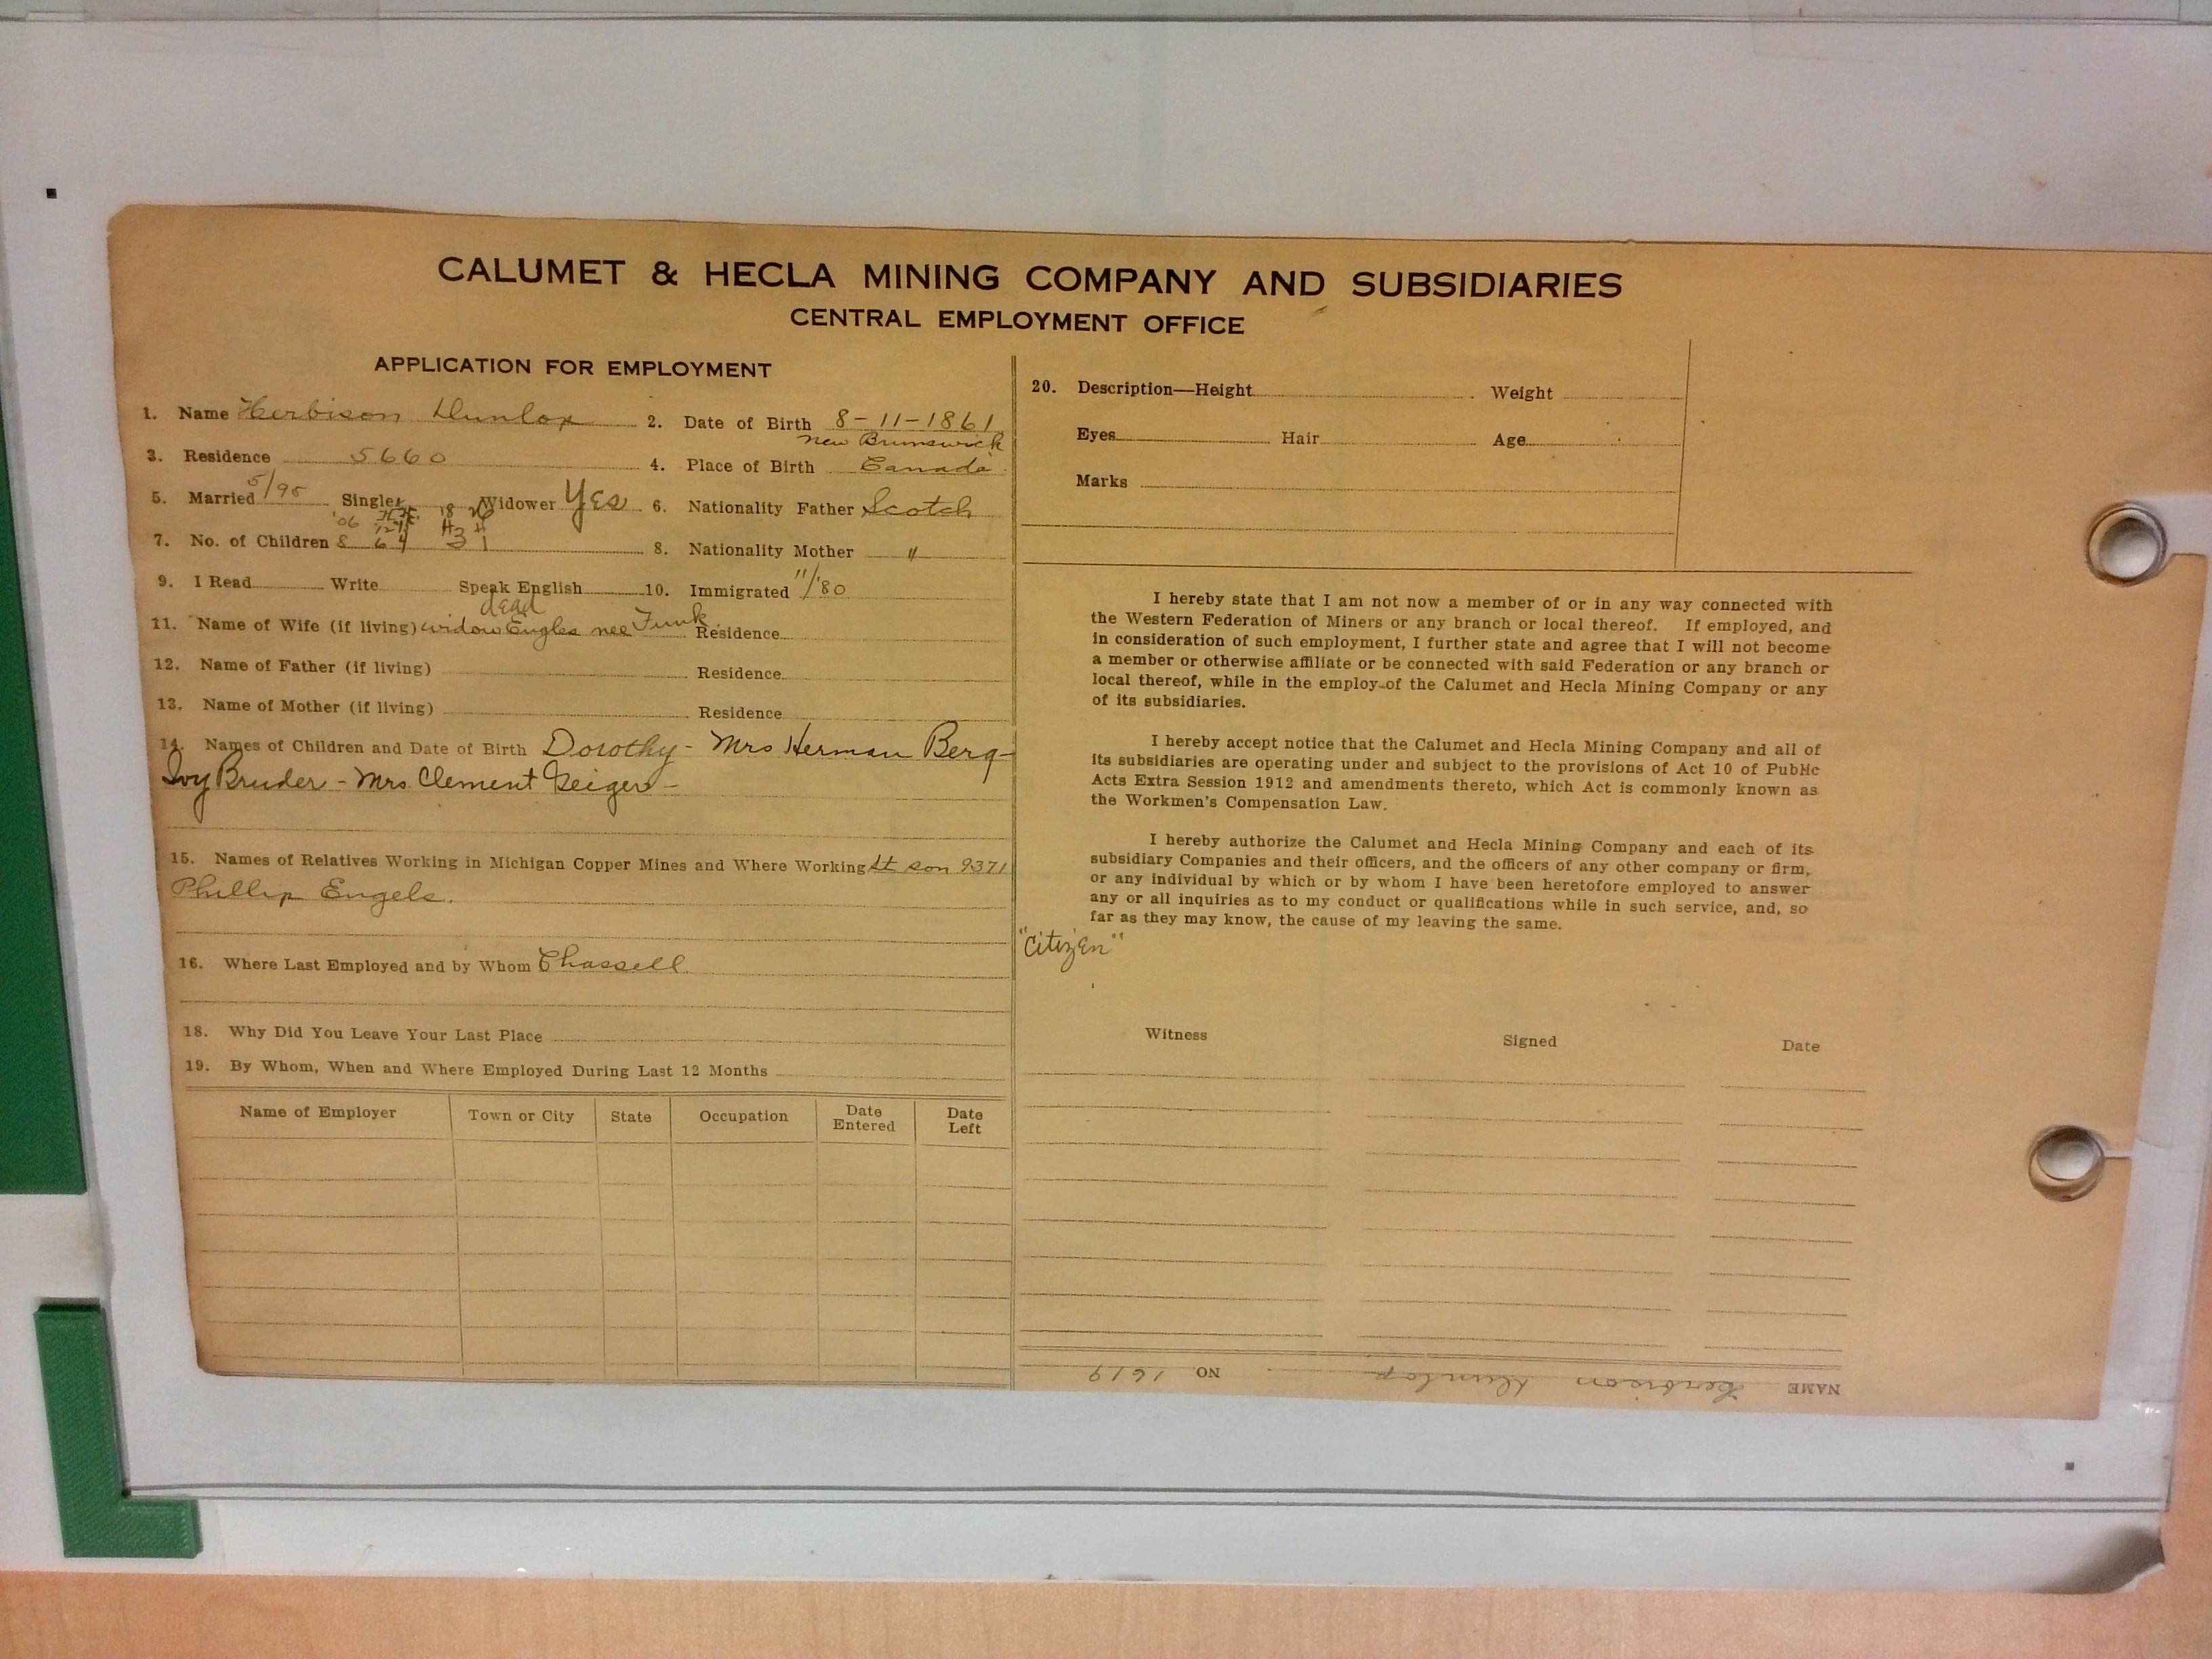 CALUMET & HECLA MINING COMPANY AND SUBSIDIARIES
CENTRAL EMPLOYMENT OFFICE
APPLICATION FOR EMPLOYMENT
1. Name Herbison Dunlop 2. Date of Birth 8-11-1861
New Brunswick
3. Residence 5660 4. Place of Birth Canada
5. Married 5/95 Single Widower Yes 6. Nationality Father Scotch
'06 '18
7. No. of Children 8 6 4 3 1 8. Nationality Mother "
9. I Read Write Speak English 10. Immigrated 11/'80
dead
11. Name of Wife (if living) widow Engles nee Funk Residence
12. Name of Father (if living) Residence
13. Name of Mother (if living) Residence
14. Names of Children and Date of Birth Dorothy - Mrs Herman Berg-
Ivy Bruder - Mrs. Clement Geiger -
15. Names of Relatives Working in Michigan Copper Mines and Where Working St son 9371
Phillip Engels.
16. Where Last Employed and by Whom Chassell
18. Why Did You Leave Your Last Place
19. By Whom, When and Where Employed During Last 12 Months
Name of Employer Town or City State Occupation Date Entered Date Left
20. Description—Height Weight
Eyes Hair Age
Marks
I hereby state that I am not now a member of or in any way connected with
the Western Federation of Miners or any branch or local thereof. If employed, and
in consideration of such employment, I further state and agree that I will not become
a member or otherwise affiliate or be connected with said Federation or any branch or
local thereof, while in the employ of the Calumet and Hecla Mining Company or any
of its subsidiaries.
I hereby accept notice that the Calumet and Hecla Mining Company and all of
its subsidiaries are operating under and subject to the provisions of Act 10 of Public
Acts Extra Session 1912 and amendments thereto, which Act is commonly known as
the Workmen's Compensation Law.
I hereby authorize the Calumet and Hecla Mining Company and each of its
subsidiary Companies and their officers, and the officers of any other company or firm,
or any individual by which or by whom I have been heretofore employed to answer
any or all inquiries as to my conduct or qualifications while in such service, and, so
far as they may know, the cause of my leaving the same.
"Citizen"
Witness Signed Date
NAME Herbison Dunlop NO. 1619